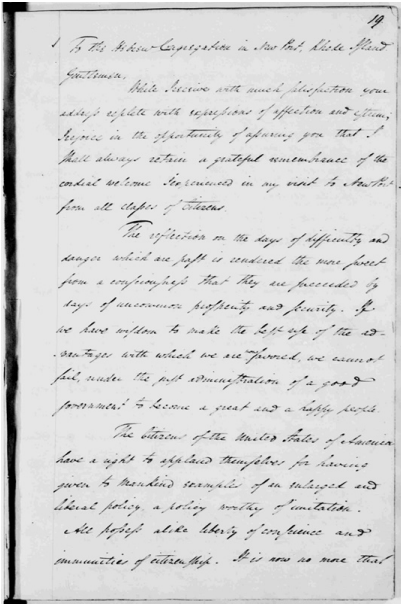 19
To the Hebrew Congregation in New Port, Rhode Island
Gentlemen,
While I receive with much satisfaction your
address replete with expressions of affection and esteem;
I rejoice in the opportunity of assuring you that I
shall always retain a grateful remembrance of the
cordial welcome I experienced in my visit to New Port
from all classes of Citizens.
The reflection on the days of difficulty and
danger which are past is rendered the more sweet
from a consciousness that they are succeeded by
days of uncommon prosperity and security. If
we have wisdom to make the best use of the ad-
-vantages with which we are now favored, we cannot
fail, under the just administration of a good
government to become a great and a happy people.
The Citizens of the United States of America
have a right to applaud themselves for having
given to Mankind examples of an enlarged and
liberal policy, a policy worthy of imitation.
All possess alike liberty of conscience and
immunities of citizenship. It is now no more that